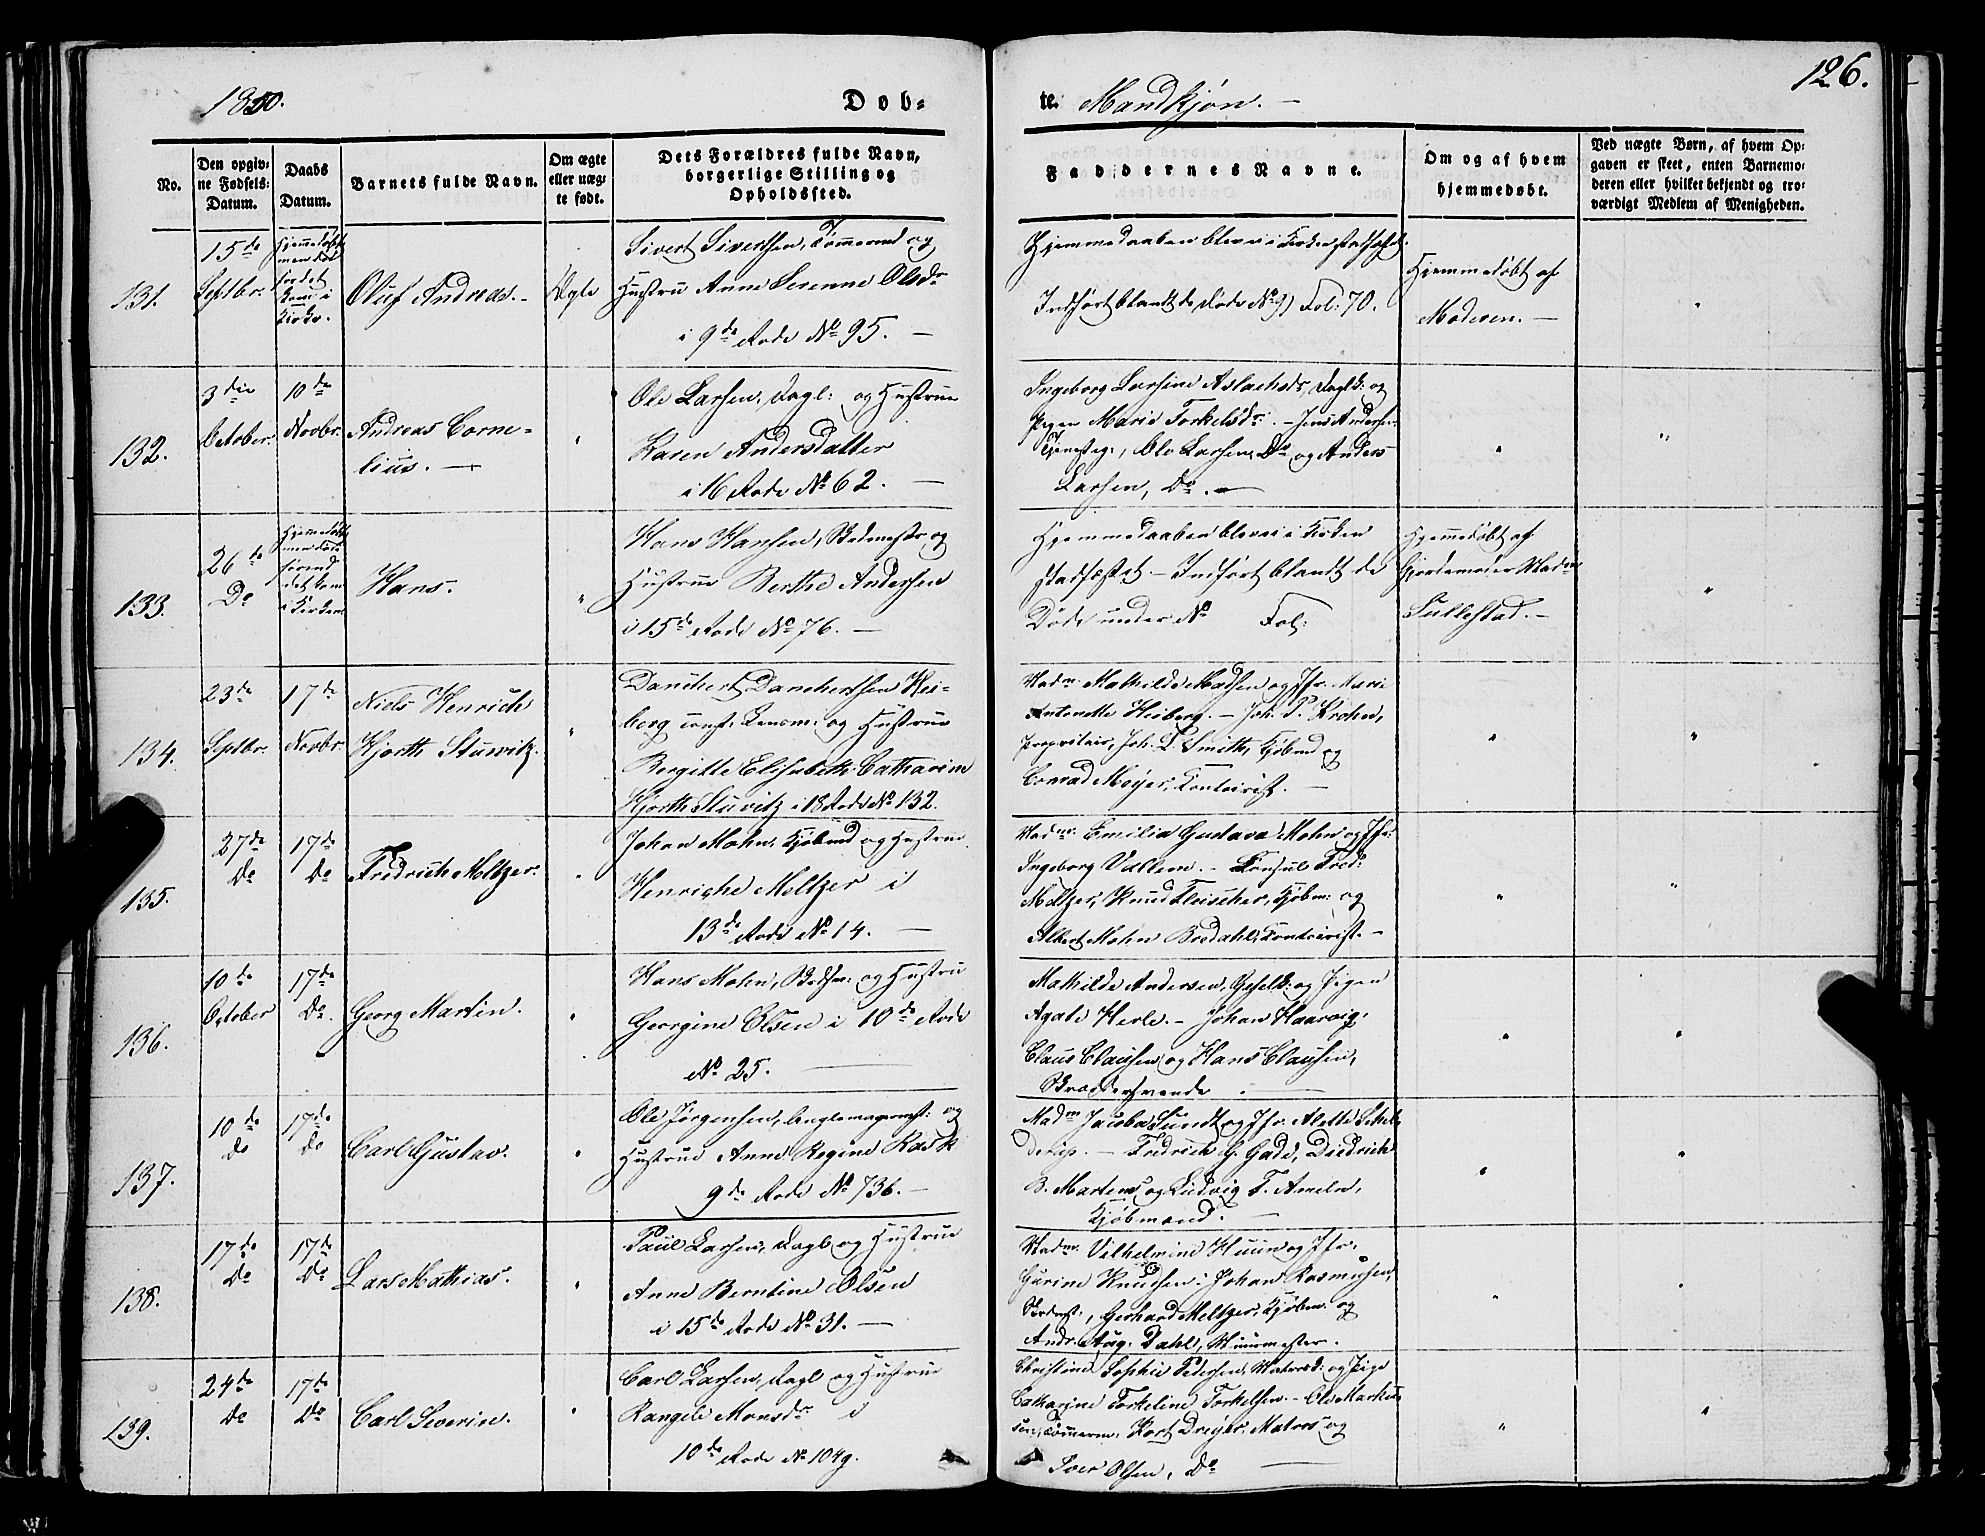 1850.
Døb-
te. Mandkjøn. —
126.
No.
Den opgiv-
ne Fødsels-
Datum.
Daabs
Datum.
Barnets fulde Navn.
Om ægte
eller uæg-
te født.
Dets Forældres fulde Navn,
borgerlige Stilling og
Opholdssted.
Faddernes Navne.
Om og af hvem
hjemmedøbt.
Ved uægte Børn, af hvem Op-
gaven er skeet, enten Barnemo-
deren eller hvilket bekjendt og tro-
værdigt Medlem af Menigheden.
131.
15de
Septbr.
Hjemmedøbt
men død
førend det
kom i
Kirke.
Oluf Andreas. –
Ægte
Sivert Sivertsen, Tømmermd og
Hustru Anne Serenne Olsdr
i 9de Rode No 95. —
Hjemmedaaben blev ei i Kirken stadfæstet.
Indført blandt de Døde No 9) Fol: 70.
Hjemmedøbt af
Moderen. —
"
132.
3die
October.
10de
Novbr.
Andreas Corne-
lius. —
"
Ole Larsen, Dagl: og Hustrue
Karen Andersdatter
i 16 Rode No 62. —
Ingeborg Larsine Aslachsdr, Daglk: og
Pigen Marie Torkelsdr. – Jens Andersen
Tjenestg:, Ole Larsen, Do og Anders
Larsen, Do. —
"
"
133.
26de
Do
Hjemmedøbt
men døde
førend
det kom
i Kirken
Hans.
"
Hans Hansen, Bødmestr og
Hustrue Berthe Andersen
i 15de Rode No 76. —
Hjemmedaaben blev ei i Kirken
stadfæstet. – Indført blandt de
Døde under No Fol:
Hjemmedøbt af
Gjordemoder Madm
Sullestad. –
"
134.
23de
Septbr.
17de
Novbr.
Niels Henrich
Hjorth Stuwitz.
"
Danchert Danchertsen Hei-
berg const: Lensm: og Hustrue
Birgitte Elisabeth Catharine
Hjorth Stuvitz i 18 Rode No 132.
Madm. Mathilde Madsen og Jfr. Marie
Antonette Heiberg. – Joh. P. Krohn,
Proprietair, Joh. L. Smith, Kjøbmd og
Conrad Meyer, Contoirist. —
"
"
135.
27de
Do
17de
Do
Fredrich Meltzer.
"
Johan Mohn, Kjøbmd og Hustrue
Henriche Meltzer i
13de Rode No 14. —
Madm. Emilia Gustava Mohn og Jfr.
Ingeborg Vallem. – Consul Fred:
Meltzer, Knud Fleischer, Kjøbm: og
Albert Mohn Bredahl, Contoirist. –
"
"
136.
10de
October
17de
Do.
Georg Martin.
"
Hans Mohn, og Hustru
Georgine Olsen i 10de Rode
No 25. —
Mathilde Andersen, og Pigen
Agate Herle. – Johan Haarvig,
Claus Clausen og Hans Clausen,
—
"
"
137.
10de
do
17de
do
Carl Gustav.
"
Ole Jørgensen, og
Hustrue Anne Regine Rask
9de Rode No 736. —
Madm Jacoba Sundt og Jfr. Alette
– Fredrich G. Gade, Diedrich
B. Martens og Ludvig F. Ameln,
Kjøbmænd. —
"
"
138.
17de
Do
17de
Do
Lars Mathias.
"
Paul Larsen, Dagl og Hustrue
Anne Berntine Olsen
i 15de Rode No 31. —
Madm. Vilhelmine Huun og Jfr.
Gurine Knudsen. Johan Rasmusen,
Gerhard Meltzer, Kjøbm. og
Andr. Aug. Dahl, Muurmester.
"
"
139.
24de
Do
17de
Do
Carl Severin.
"
Carl Larsen, Dagl og Hustrue
Rangele Monsdr i
10de Rode No 1049.
Christine Sophie Pedersen, og Pige
Catharine Torkeline Torkelsen. – Ole Marcus
sen, Tømmerm. Kort Dreyer, Matros og
Iver Olsen, Do —
"
"